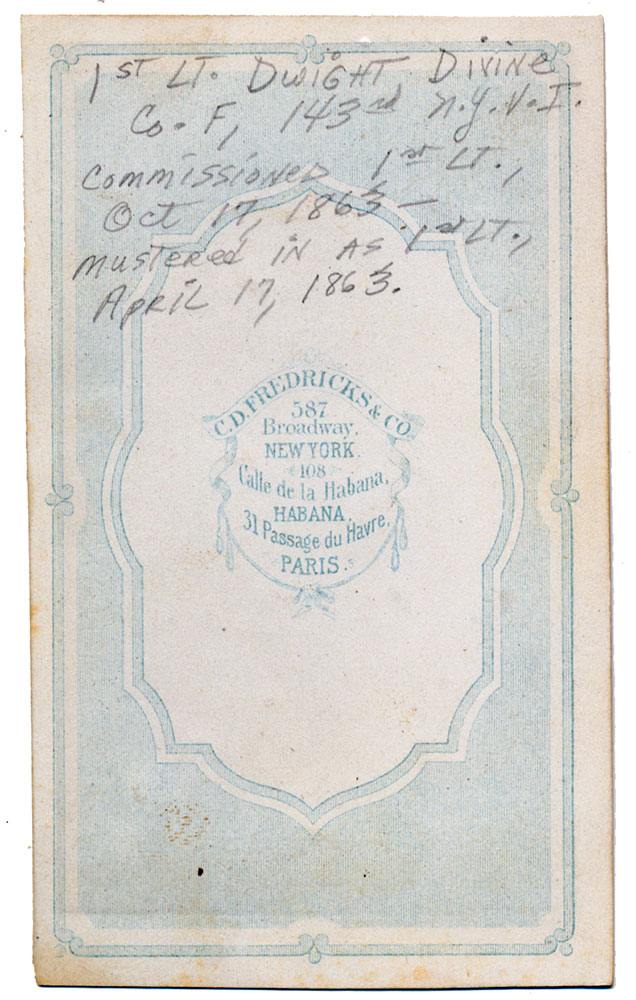 1ST LT. DWIGHT DIVINE
Co. F, 143rd N.Y.V.I.
COMMISSIONED 1st LT.,
Oct 17, 1863 –
MUSTERED IN AS 1st LT.,
APRIL 17, 1863.
C.D. FREDRICKS & CO.
587
Broadway,
NEW YORK.
108
Calle de la Habana,
HABANA,
31 Passage du Havre,
PARIS.